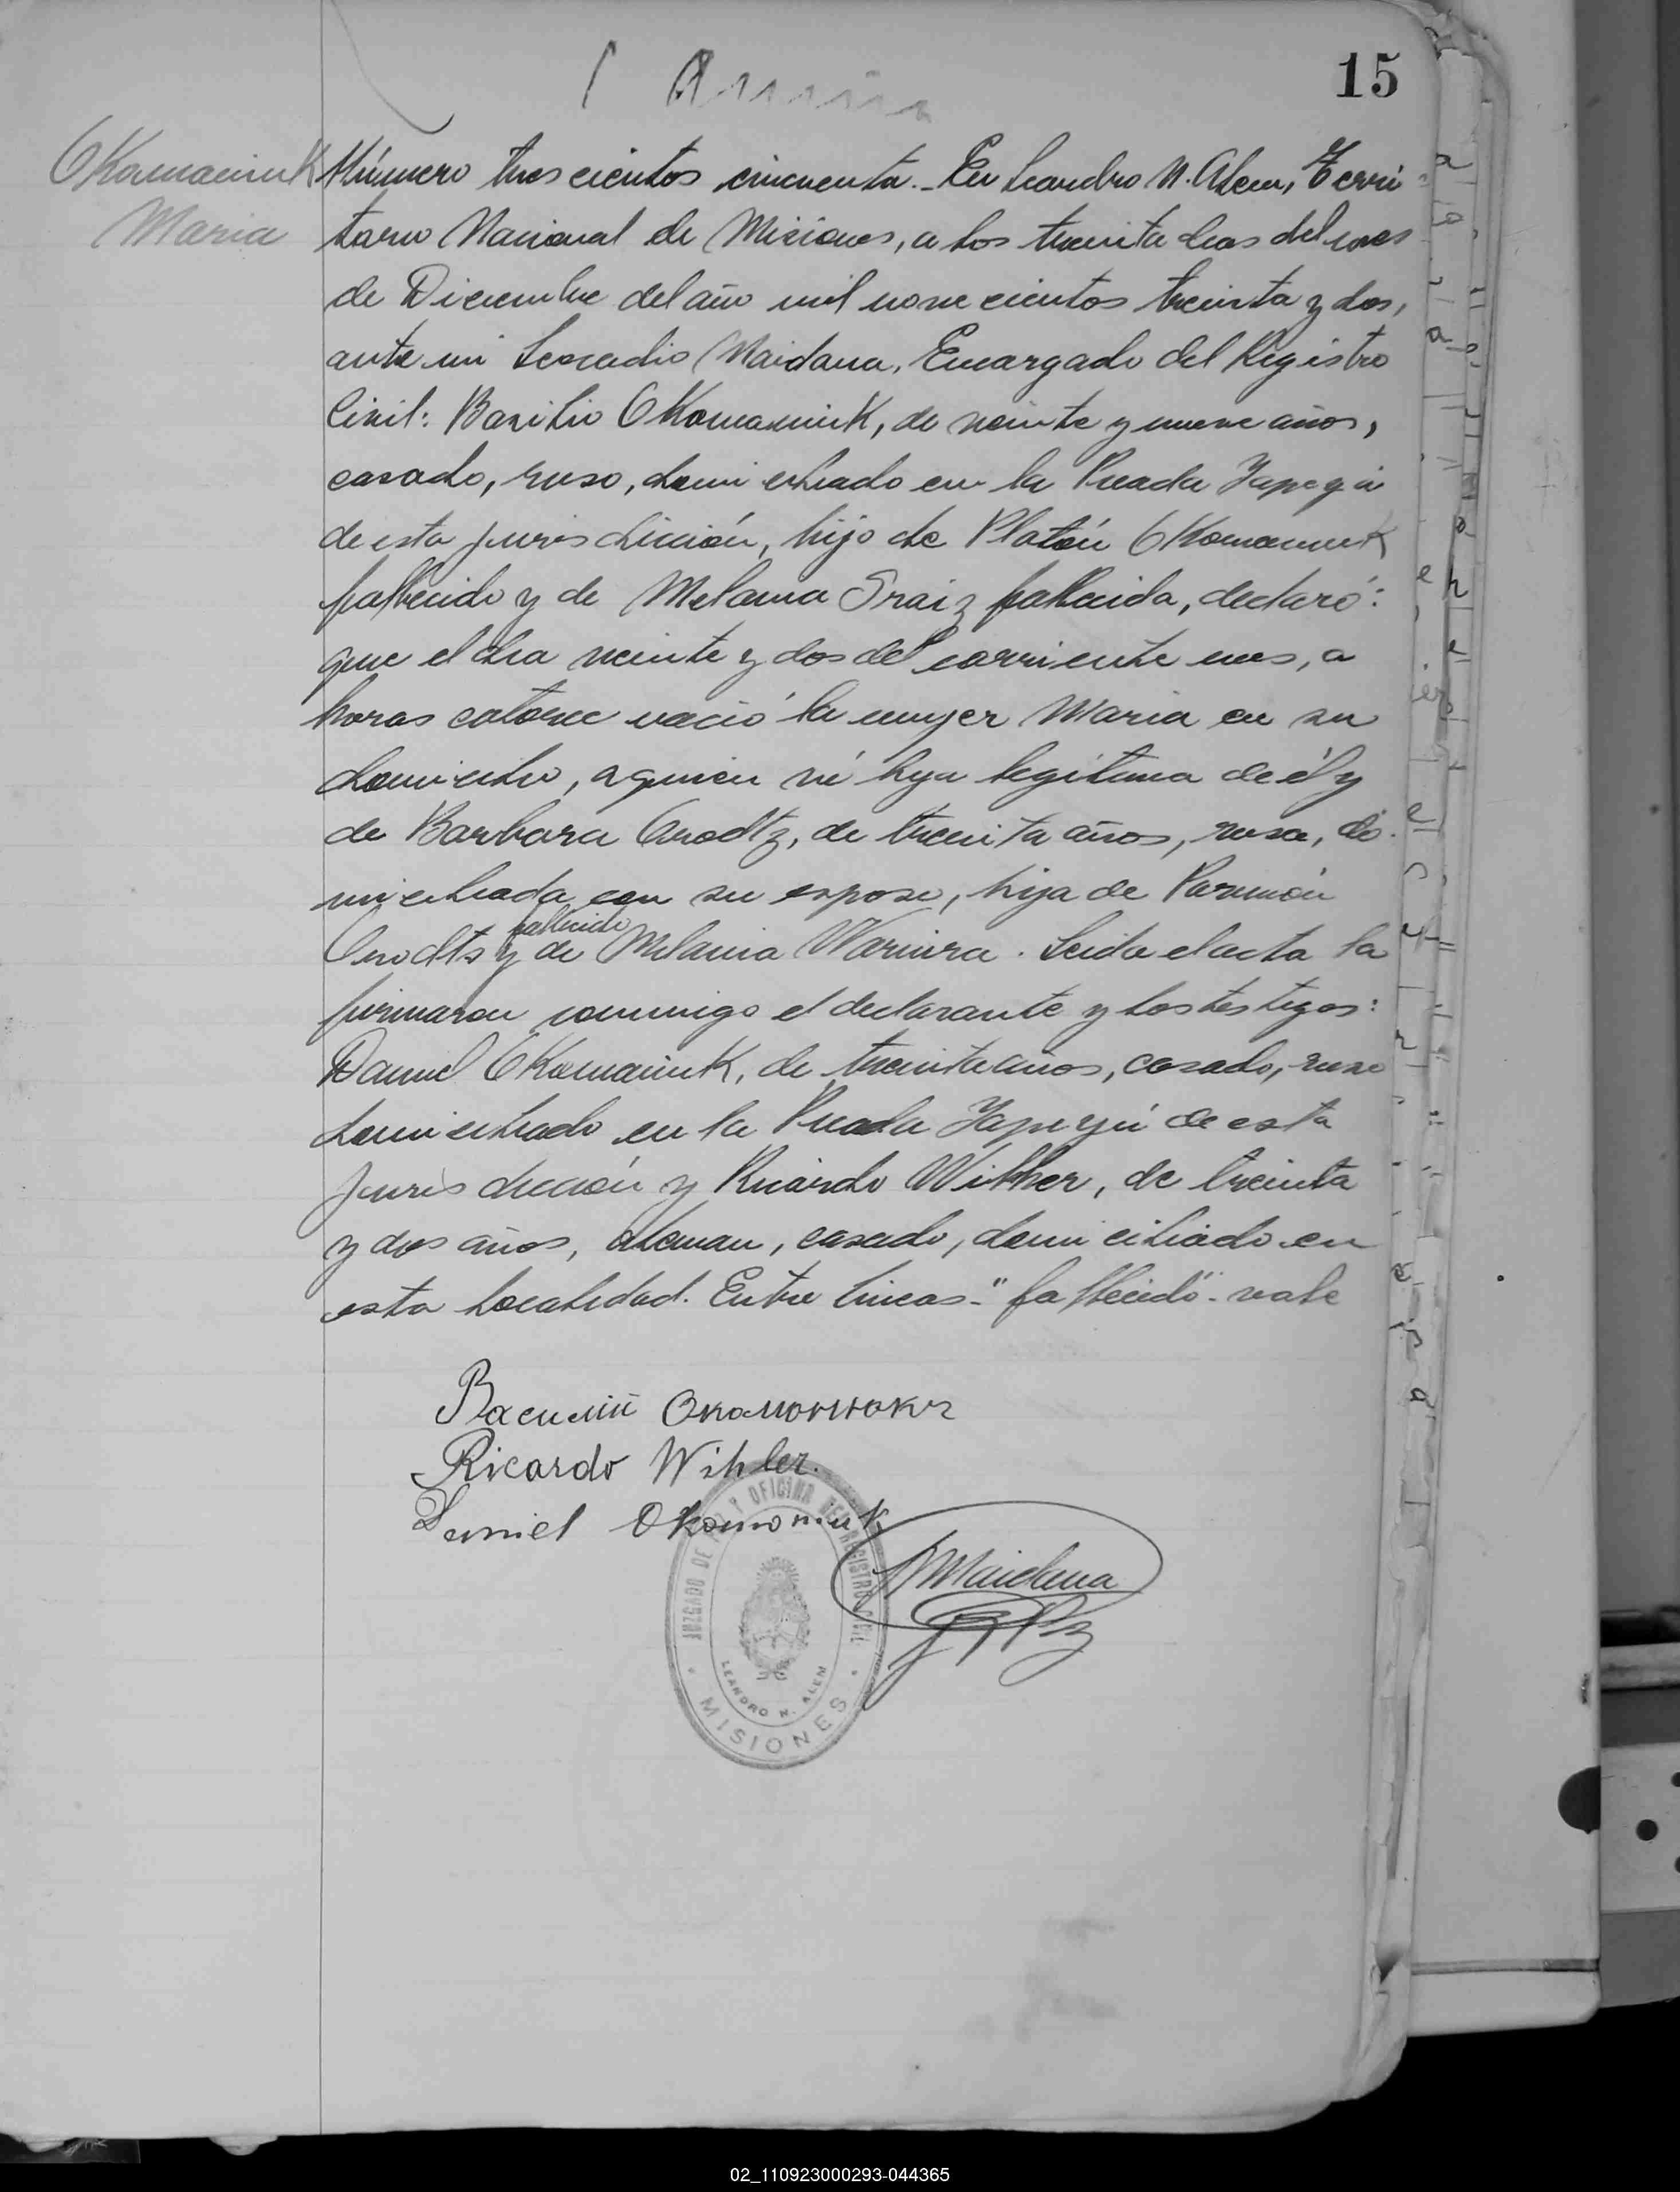 15
Okomaniuk
Maria
Número tres cientos cincuenta.- En Leandro N. Alem, Terri-
torio Nacional de Misiones, a los treinta dias del mes
de Diciembre del año mil nove cientos treinta y dos,
ante mi Leocadio Maidana, Encargado del Registro
Civil: Basilio Okomaniuk, de veinte y nueve años,
casado, ruso, domiciliado en la Picada Yapeyú
de esta jurisdicción, hijo de Platón Okomaniuk
fallecido y de Melania fallecida, declaró:
que el dia veinte y dos del corriente mes, a
horas catorce nació la mujer Maria en su
domicilio, a quien vi hija legitima de él y
de Barbara de treinta años, rusa, do-
miciliada con su esposo, hija de
fallecido
y de Melania. Leida el acta la
firmaron conmigo el declarante y los testigos:
Daniel Okomaniuk, de treinta años, casado, ruso
domiciliado en la Picada Yapeyú de esta
jurisdicción y Ricardo Wihler, de treinta
y dos años, aleman, casado, domiciliado en
esta localidad. Entre lineas-"fallecido"-vale
Василий Окоманюкъ
Ricardo Wihler.
Daniel Okomoniuk
Maidana
JUZGADO DE PAZ Y OFICINA DEL REGISTRO CIVIL
LEANDRO N. ALEM
MISIONES
02_110923000293-044365